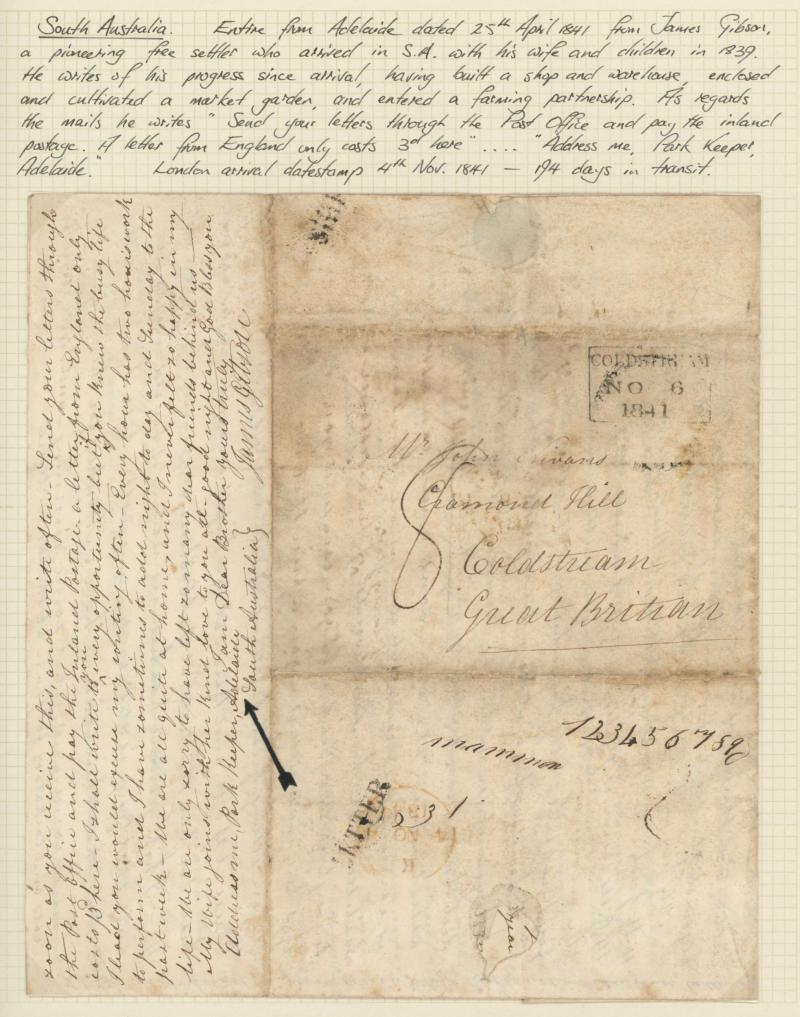 South Australia. Entire from Adelaide dated 25th April 1841 from James Gibson,
a pioneering free settler who arrived in S.A. with his wife and children in 1839.
He writes of his progress since arrival, having built a shop and warehouse, enclosed
and cultivated a market garden, and entered a farming partnership. As regards
the mails he writes "Send your letters through the Post Office and pay the inland
postage. A letter from England only costs 3d here" .... "Address me, Park Keeper,
Adelaide." London arrival datestamp 4th Nov. 1841 — 194 days in transit.
soon as you receive this, and write often – Send your letters through
the Post Office and pay the Inland Postage – a letter from England only
costs 3d here – I shall write to you every opportunity but if you knew the busy life
I lead you would excuse my not writing often – Every hour has two hours work
to perform and I have sometimes to add night to day and Sunday to the
past week – We are all quite at home, and I never felt so happy in my
life – We are only sorry to have left so many dear friends behind us –
My Wife joins with her kind love to you all – good night and God Bless you
I am Dear Brother yours truly
James Gibson
Address me, Park Keeper, Adelaide
South Australia
SHIP
COLDSTREAM
NO 6
1841
8
Mr John Evans
Hill
Coldstream
Great Britian
1234567890
mammon
231
LETTER